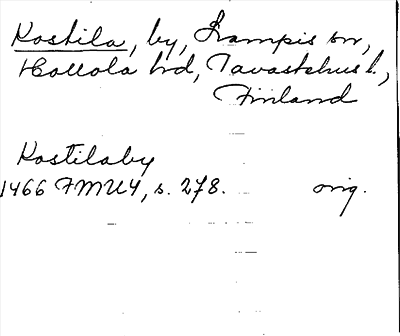 Kostila, by, Lampis sn,
Hollola hd, Tavastehus l.,
Finland
Kostilaby
1466 FMU4, s. 278. orig.